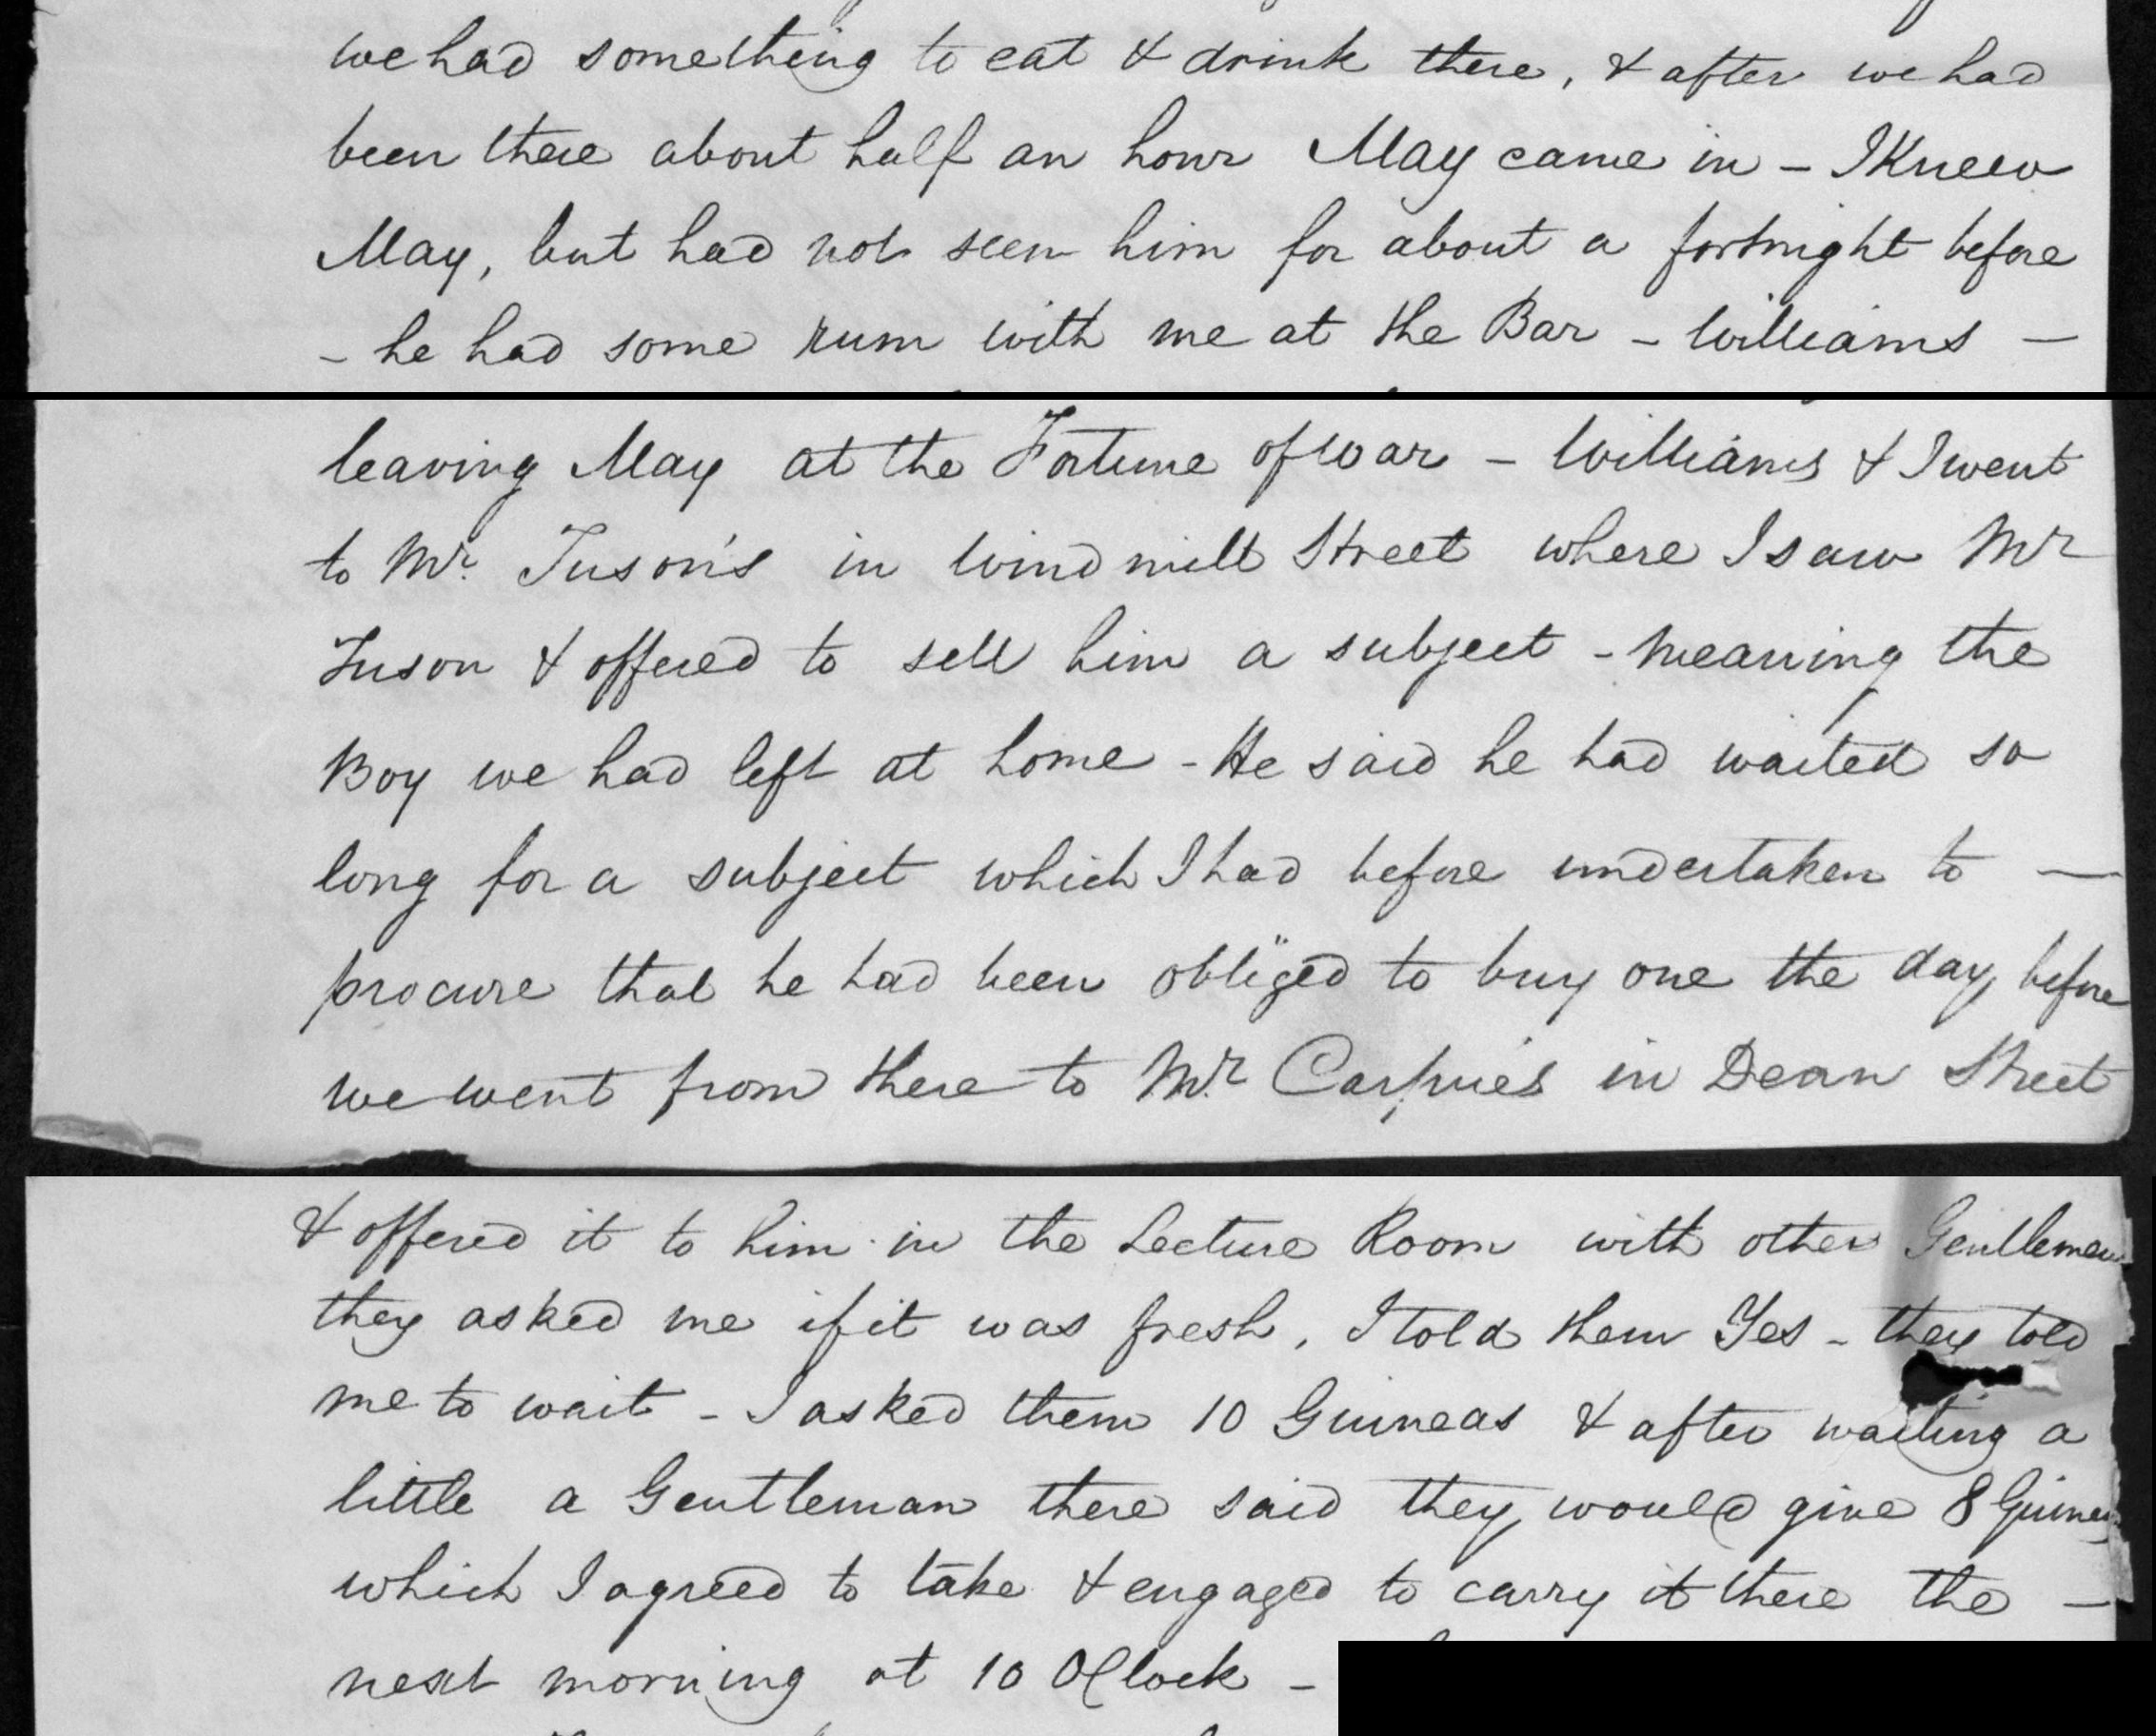 we had something to eat & drink there, & after we had
been there about half an hour May came in - I Knew
May, but had not seen him for about a fortnight before
- he had some rum with me at the Bar - Williams -
leaving May at the Fortune of War - Williams & I went
to Mr. Tuson's in Windmill Street where I saw Mr
Tuson & offered to sell him a subject - meaning the
Boy we had left at home - He said he had waited so
long for a subject which I had before undertaken to -
procure that he had been obliged to buy one the day before
we went from there to Mr Carpue's in Dean Street
& offered it to him in the Lecture Room with other Gentlemen
they asked me if it was fresh, I told them Yes - they told
me to wait - I asked them 10 Guineas & after waiting a
little a Gentleman there said they would give 8 Guineas
which I agreed to take & engaged to carry it there the -
next morning at 10 OClock -